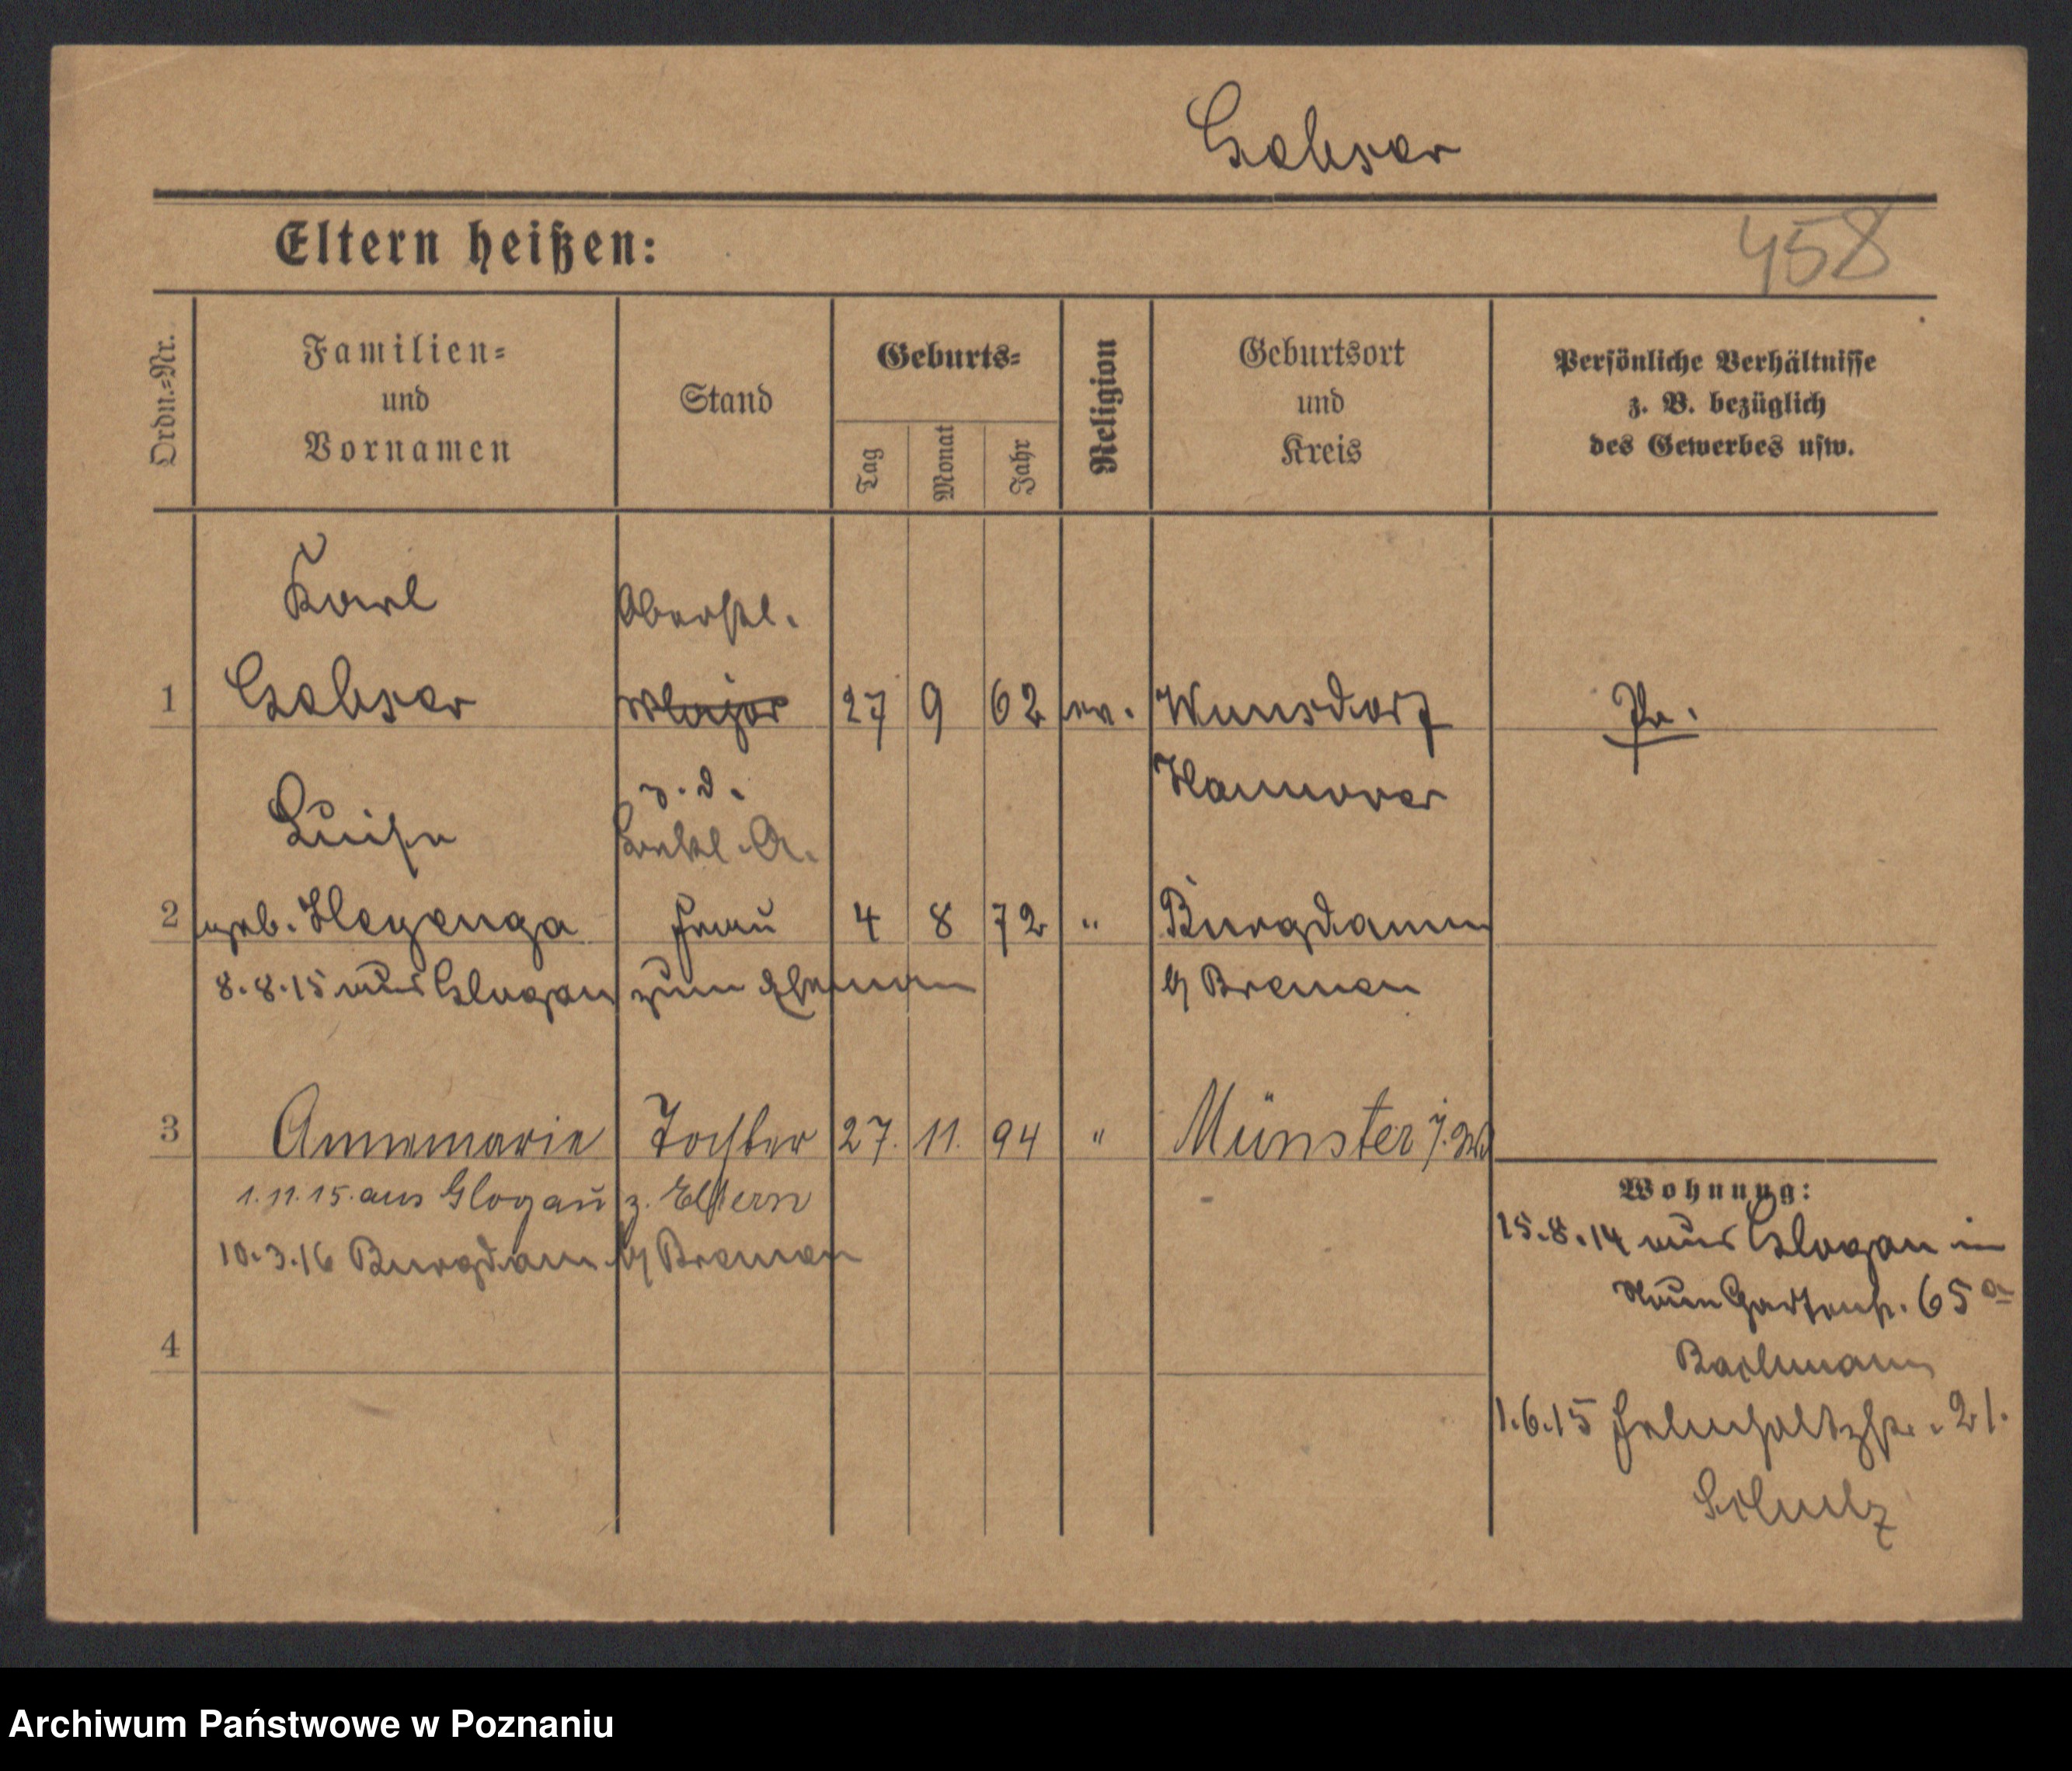 Gabser
Eltern heißen:
458
Ordn.-Nr.
Familien-
und
Vornamen
Stand
Geburts-
Tag
Monat
Jahr
Religion
Geburtsort
und
Kreis
Persönliche Verhältnisse
z. B. bezüglich
des Gewerbes usw.
Karl
Oberstl.
1
Gabser
Major
27
9
62
ev.
Wunsdorf
Pr.
z. D.
Hannover
Luise
2
geb. Heyenga
Frau
4
8
72
"
Burgdamm
8.8.15 aus Glogau zum Ehemann
b/ Bremen
3
Annemarie
Tochter
27.
11.
94
"
Münster i. W.
1.11.15. aus Glogau z. Eltern
10.3.16 Burgdam b/ Bremen
Wohnung:
15.8.14 aus Glogau in
Neue Gartenstr. 65a
Bachmann
4
1.6.15 Helmholtzstr. 21.
Schulz
Archiwum Państwowe w Poznaniu